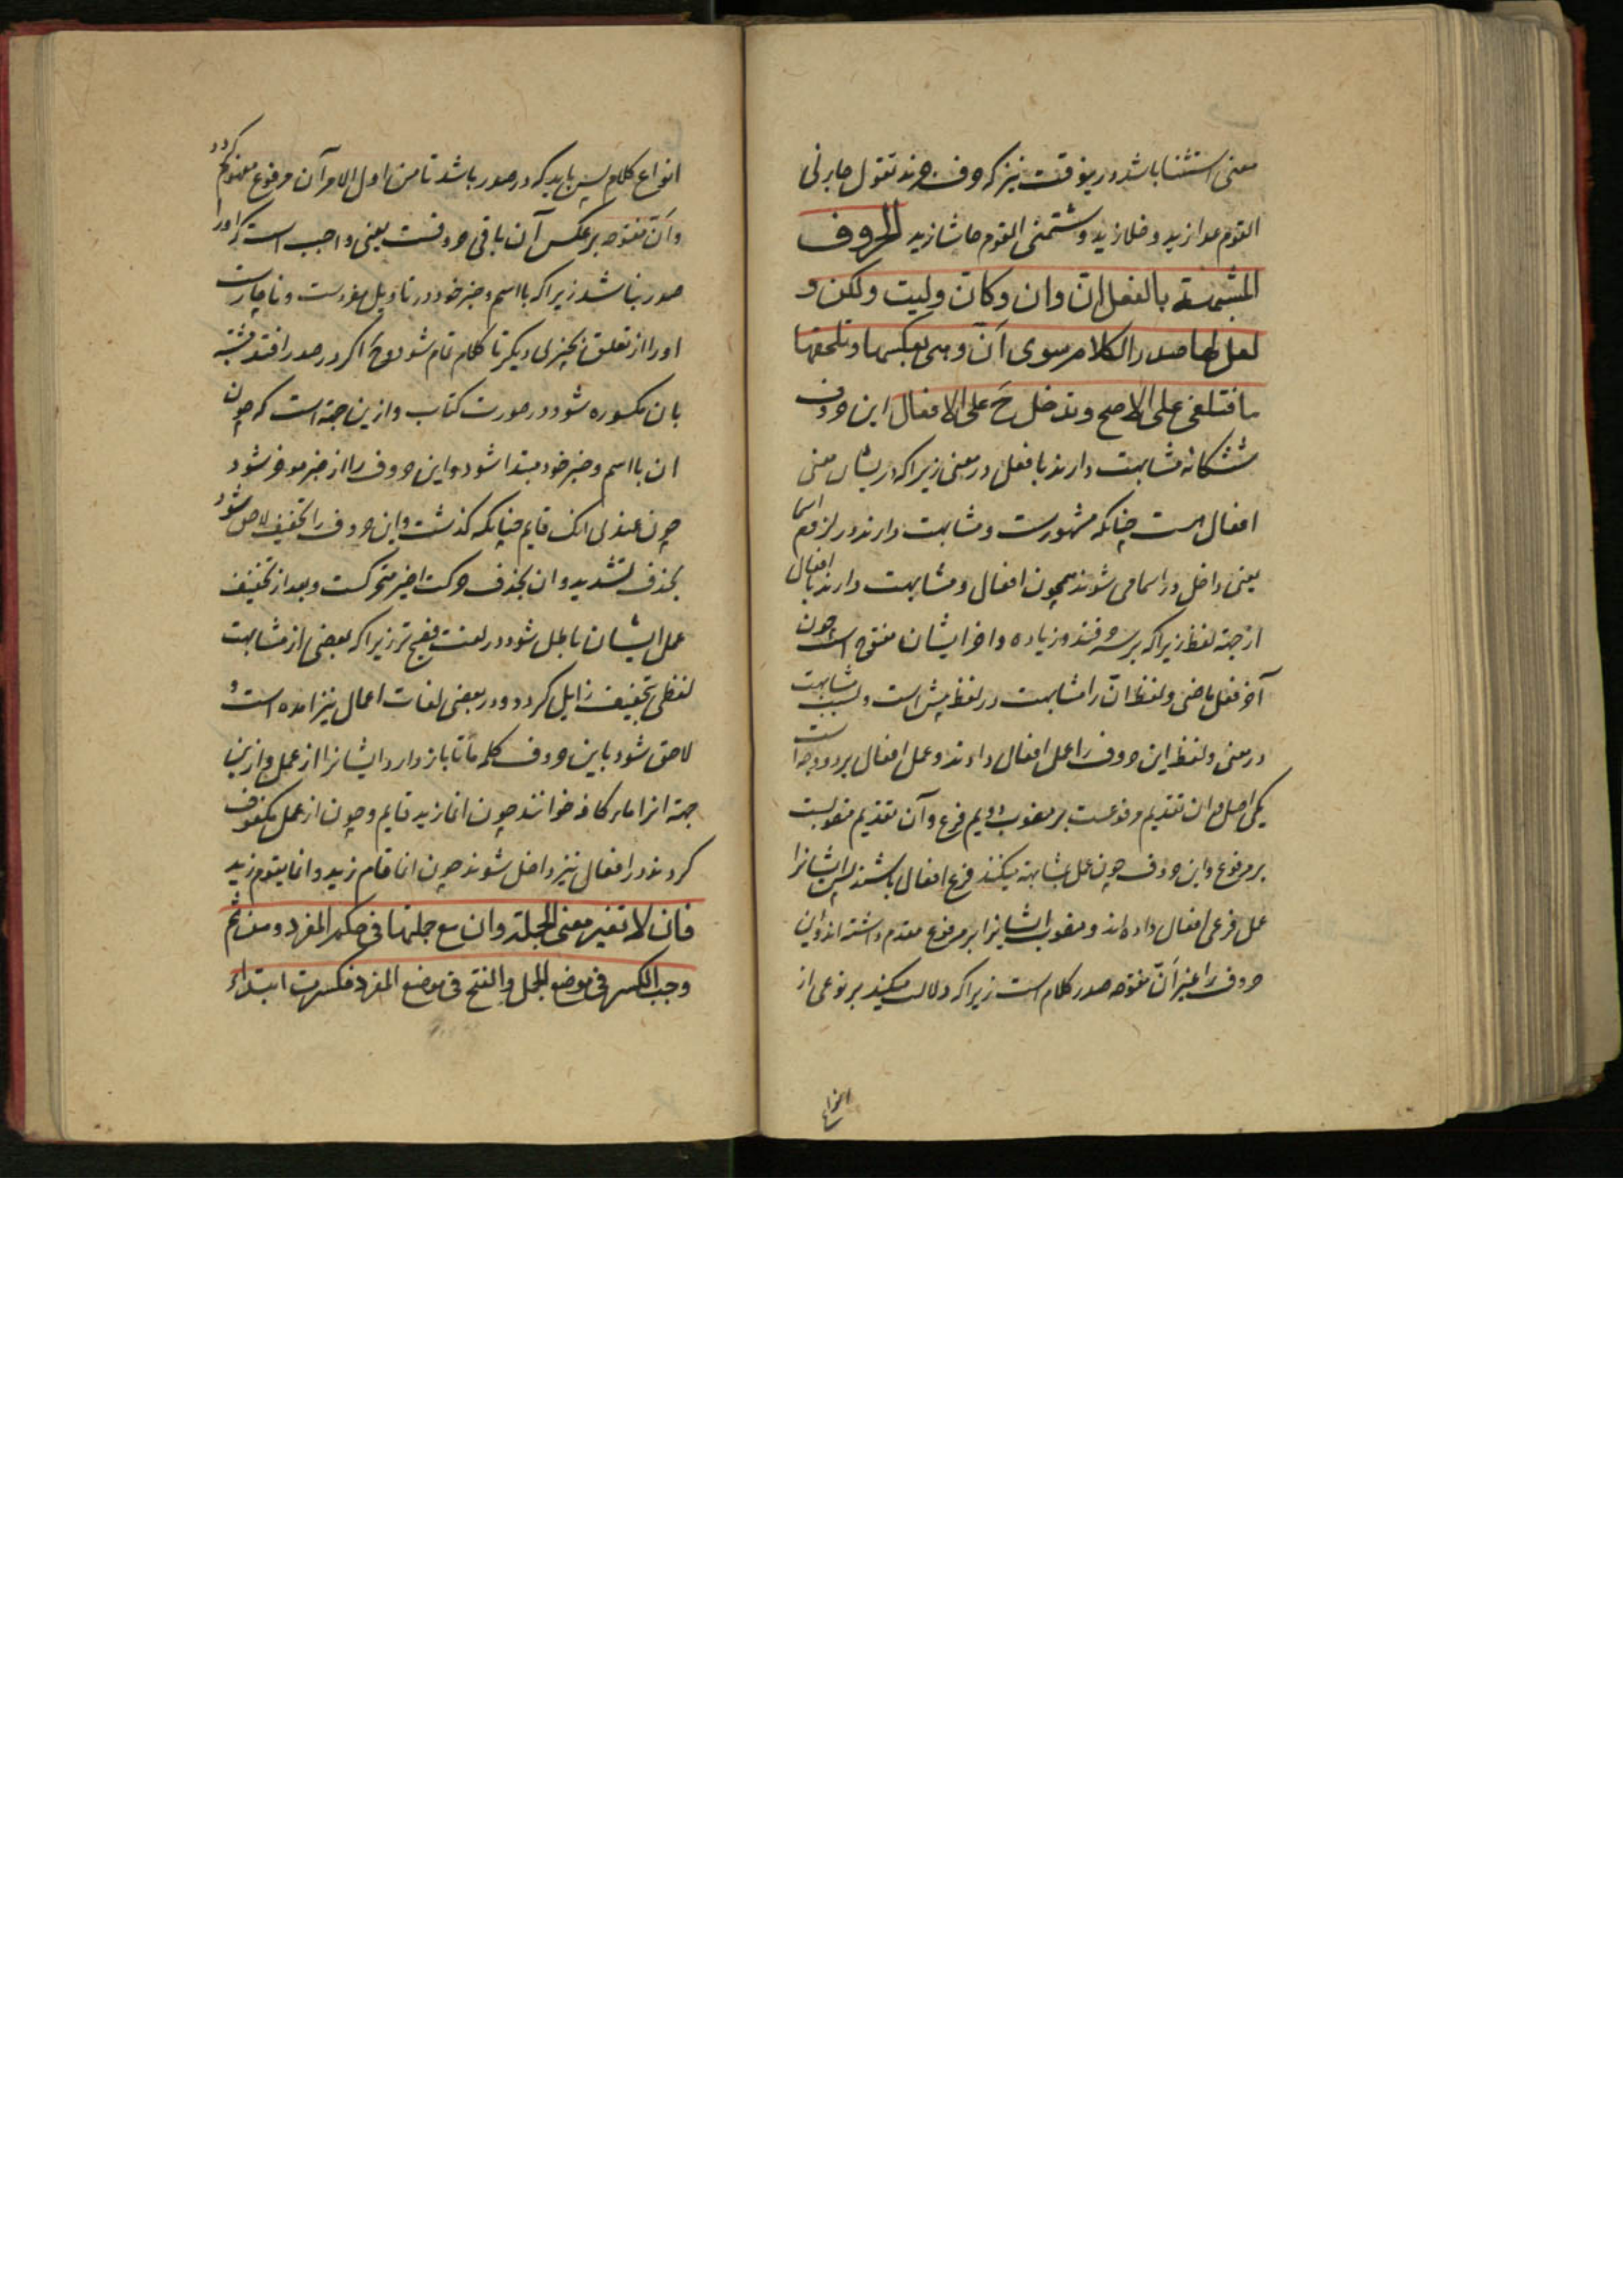 معنی استثنا باشد درینوقت نیز که حرف جرند تقول جابرنی
القوم عدا زید و خلا زید و شتمنی القوم حاشا زید الحروف
المشبهة بالفعل ان وان وکان ولیت ولکن و
لعل لها صدر الکلام سوی اَنّ وهی بعکسها وتلحقها
ما فتلغی علی الاصح وتدخل ح علی الافعال این حروف
ششکانه مشابهت دارند با فعل در معنی زیراکه دریشان معنی
افعال است چنانکه مشهورست ومشابهت دارند در لزوم اسما
یعنی داخل در اسما می شوند همچون افعال ومشابهت دارند با افعال
از جهة لفظ زیراکه بر سه حرفند وزیاده واخر ایشان مفتوح است چون
آخر فعل ماضی ولفظ انّ را مشابهت در لفظ پیش است وبسبب مشابهت
در معنی ولفظ این حروف را عمل افعال دادند وعمل افعال بر دو وجه است
یکی اصل وان تقدیم مرفوعست بر منصوب دویم فرع وآن تقدیم منصوبست
بر مرفوع واین حروف چون عمل بمشابهة میکنند فرع افعال باشند پس ایشانرا
عمل فرعی افعال داده اند ومنصوب ایشانرا بر مرفوع مقدم داشته اند واین
حروف را غیر اَنّ مفتوحه صدر کلام است زیراکه دلالت میکنند بر نوعی از
انواع
انواع کلام پس باید که در صدر باشد تا من اول الامر آن مرفوع مفهوم کردد
واَنّ مفتوحه بر عکس آن باقی حروفست یعنی واجب است که اورا
صدر نباشد زیراکه با اسم وخبر خود در تاویل مفردست وناچارست
اورا از تعلق بچیزی دیکر تا کلام تمام شود وح اکر در صدر افتد مشتبه
بان مکسوره شود در صورت کتاب وازین جهة است که چون
ان با اسم وخبر خود مبتدا شود واین حروف را از خبر موخر شود
چون عندی انک قایم چنانکه کذشت واین حروف را تخفیف لاحق شود
بحذف تشدید وان بحذف حرکت اخیر متحرکست وبعد از تخفیف
عمل ایشان باطل شود در لغت فصیح تر زیراکه بعضی از مشابهت
لفظی بتخفیف زایل کردد ودر بعضی لغات اعمال نیز امده است و
لاحق شود باین حروف کلمه ما تا باز دارد ایشانرا از عمل وازین
جهة انرا ماء کافه خوانند چون انما زید قایم وچون از عمل مکفوف
کردند در افعال نیز داخل شوند چون انما قام زید وانما یقوم زید
فان لا تغیر معنی الجملة وان مع جملتها فی حکم المفرد ومن ثم
وجب الکسر فی موضع الجمل والفتح فی موضع المفرد فکسرت ابتداء